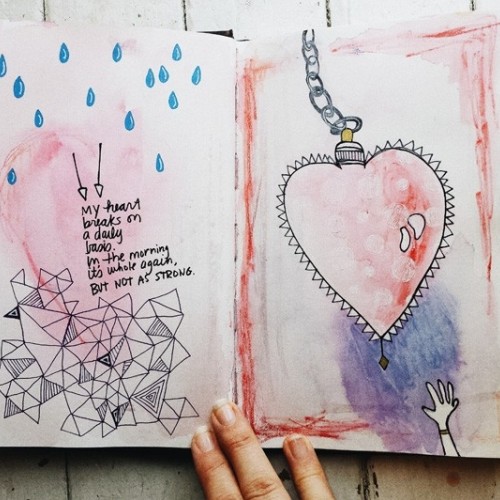 My heart
breaks on
a daily
basis.
In the morning
it's whole again.
BUT NOT AS STRONG.